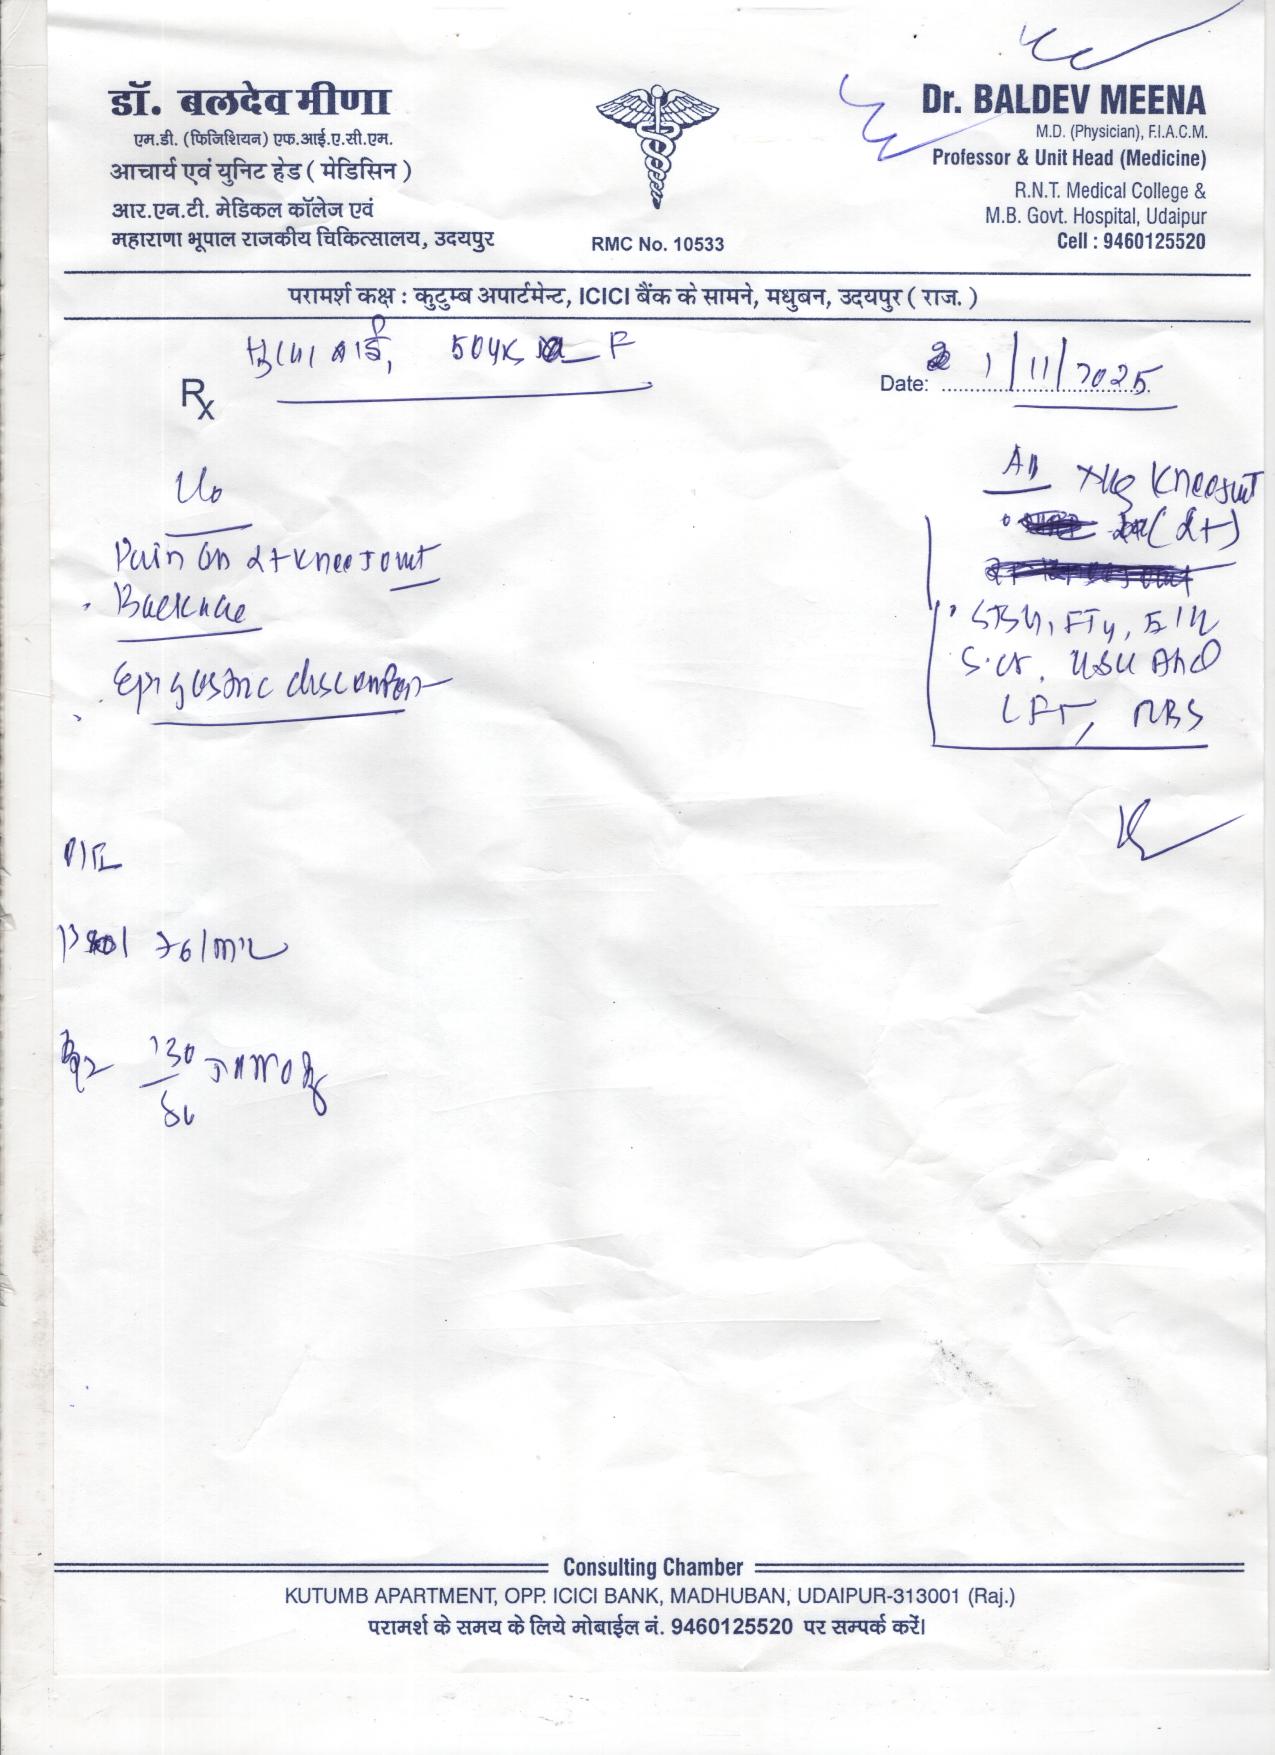 डॉ. बलदेव मीणा
एम.डी. (फिजिशियन) एफ.आई.ए.सी.एम.
आचार्य एवं युनिट हेड ( मेडिसिन )
आर.एन.टी. मेडिकल कॉलेज एवं
महाराणा भूपाल राजकीय चिकित्सालय, उदयपुर
RMC No. 10533
Dr. BALDEV MEENA
M.D. (Physician), F.I.A.C.M.
Professor & Unit Head (Medicine)
R.N.T. Medical College &
M.B. Govt. Hospital, Udaipur
Cell : 9460125520
परामर्श कक्ष : कुटुम्ब अपार्टमेन्ट, ICICI बैंक के सामने, मधुबन, उदयपुर ( राज. )
बाई, 50 F
Date: 1/11/2025
Rx
Pain on Lt Knee Joint
Backache
Epigastric discomfort
Adv Xray Knee Joint
(Lt)
S.cr,
LFT, RBS
P/E
76/min
130
mmHg
Consulting Chamber
KUTUMB APARTMENT, OPP. ICICI BANK, MADHUBAN, UDAIPUR-313001 (Raj.)
परामर्श के समय के लिये मोबाईल नं. 9460125520 पर सम्पर्क करें।